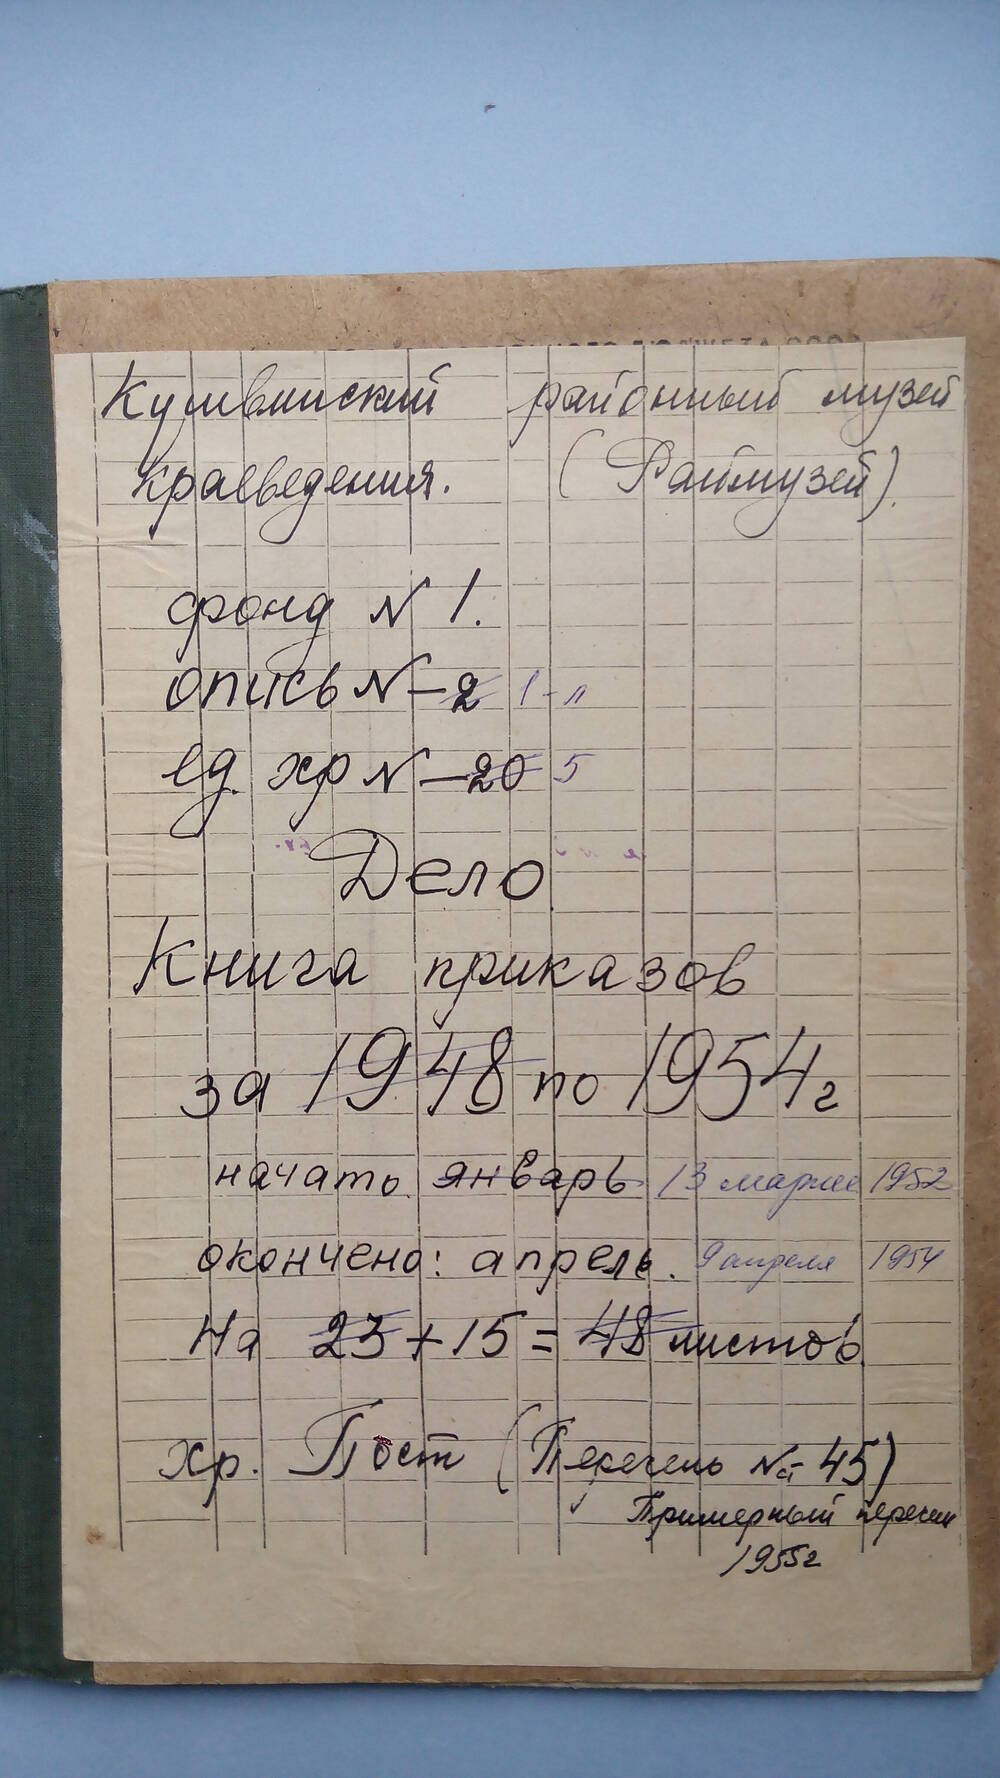 Кушвинский районный музей
краеведения. (Раймузей).
фонд N 1.
опись N-2 1-л
ед. хр N-20 5
Дело
Книга приказов
за 1948 по 1954г
начато январь 13 марта 1952
окончено: апрель. 9 апреля 1954
На 23+15=48 листов
хр. Пост (Перечень №-45)
Примерный перечен
1955г